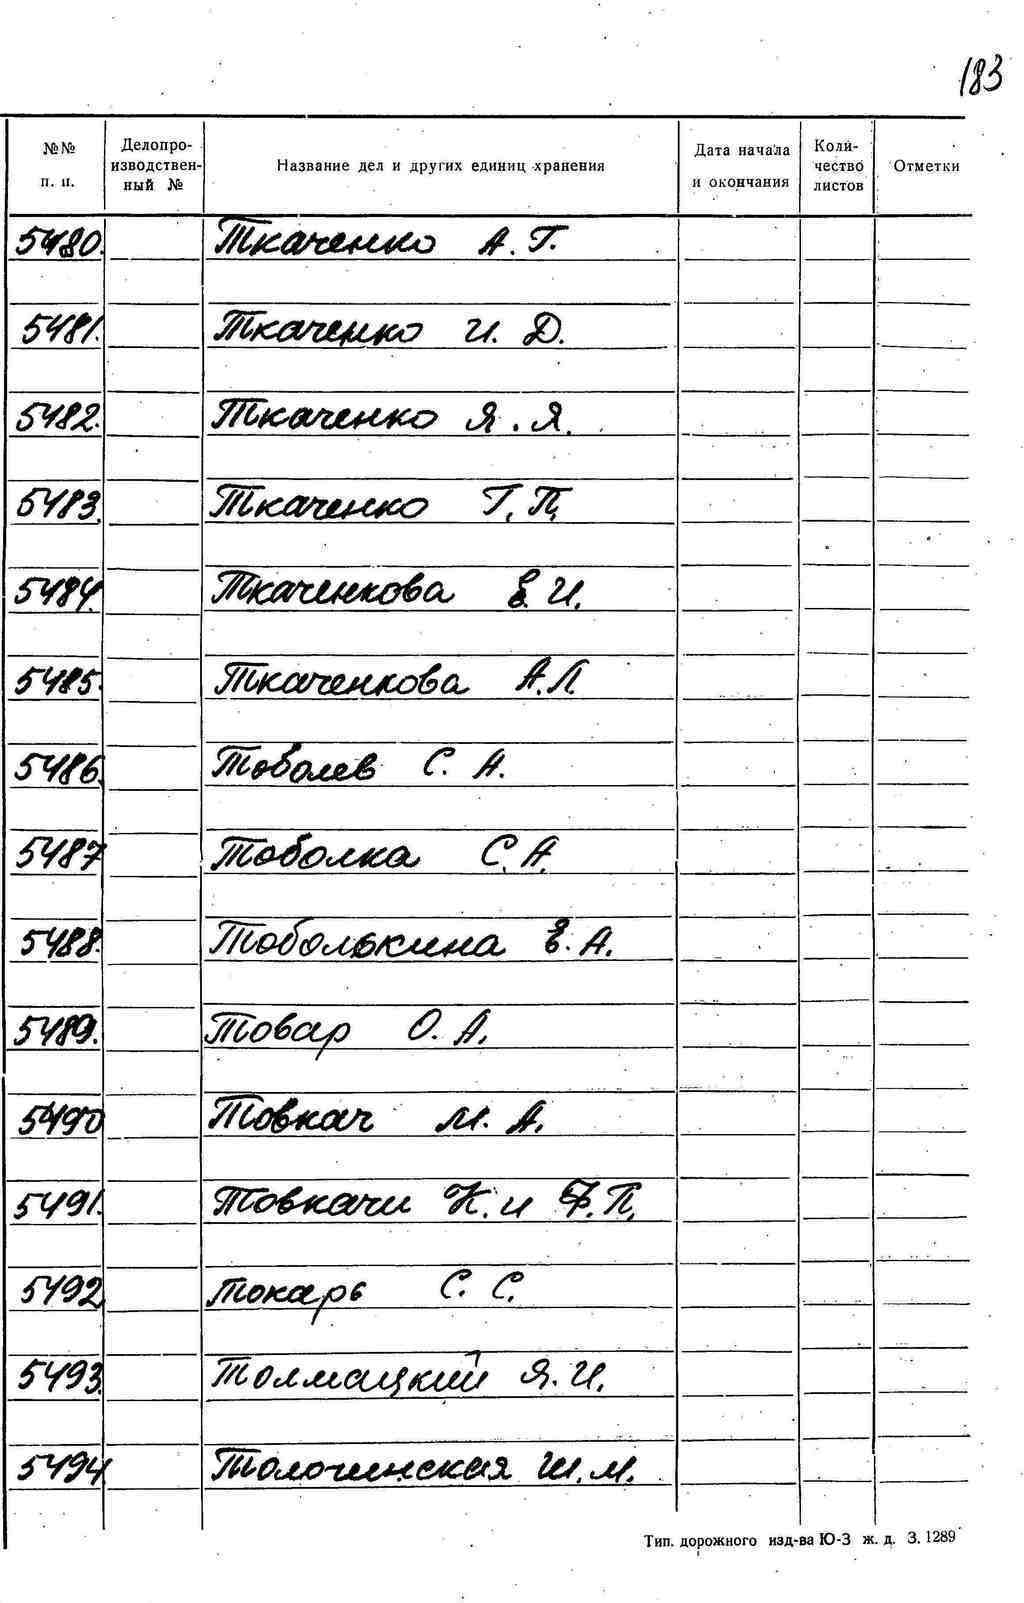 183
№№ п. п. Делопро-изводствен-ный № Название дел и других единиц хранения Дата начала и окончания Коли-чество листов Отметки
5480. Ткаченко А. Г.
5481. Ткаченко И. Д.
5482. Ткаченко Я. Я.
5483. Ткаченко Г. П.
5484. Ткаченкова Е. И.
5485. Ткаченкова А. Л.
5486. Тоболев С. А.
5487 Тоболка С. А.
5488. Тоболькина Е. А.
5489. Товар О. А.
5490 Товкач М. А.
5491. Товкачи К. и Ф. П.
5492. Токарь С. С.
5493. Толмацкий Я. И.
5494 Толочинская Ш. М.
Тип. дорожного изд-ва Ю-З ж. д. З. 1289